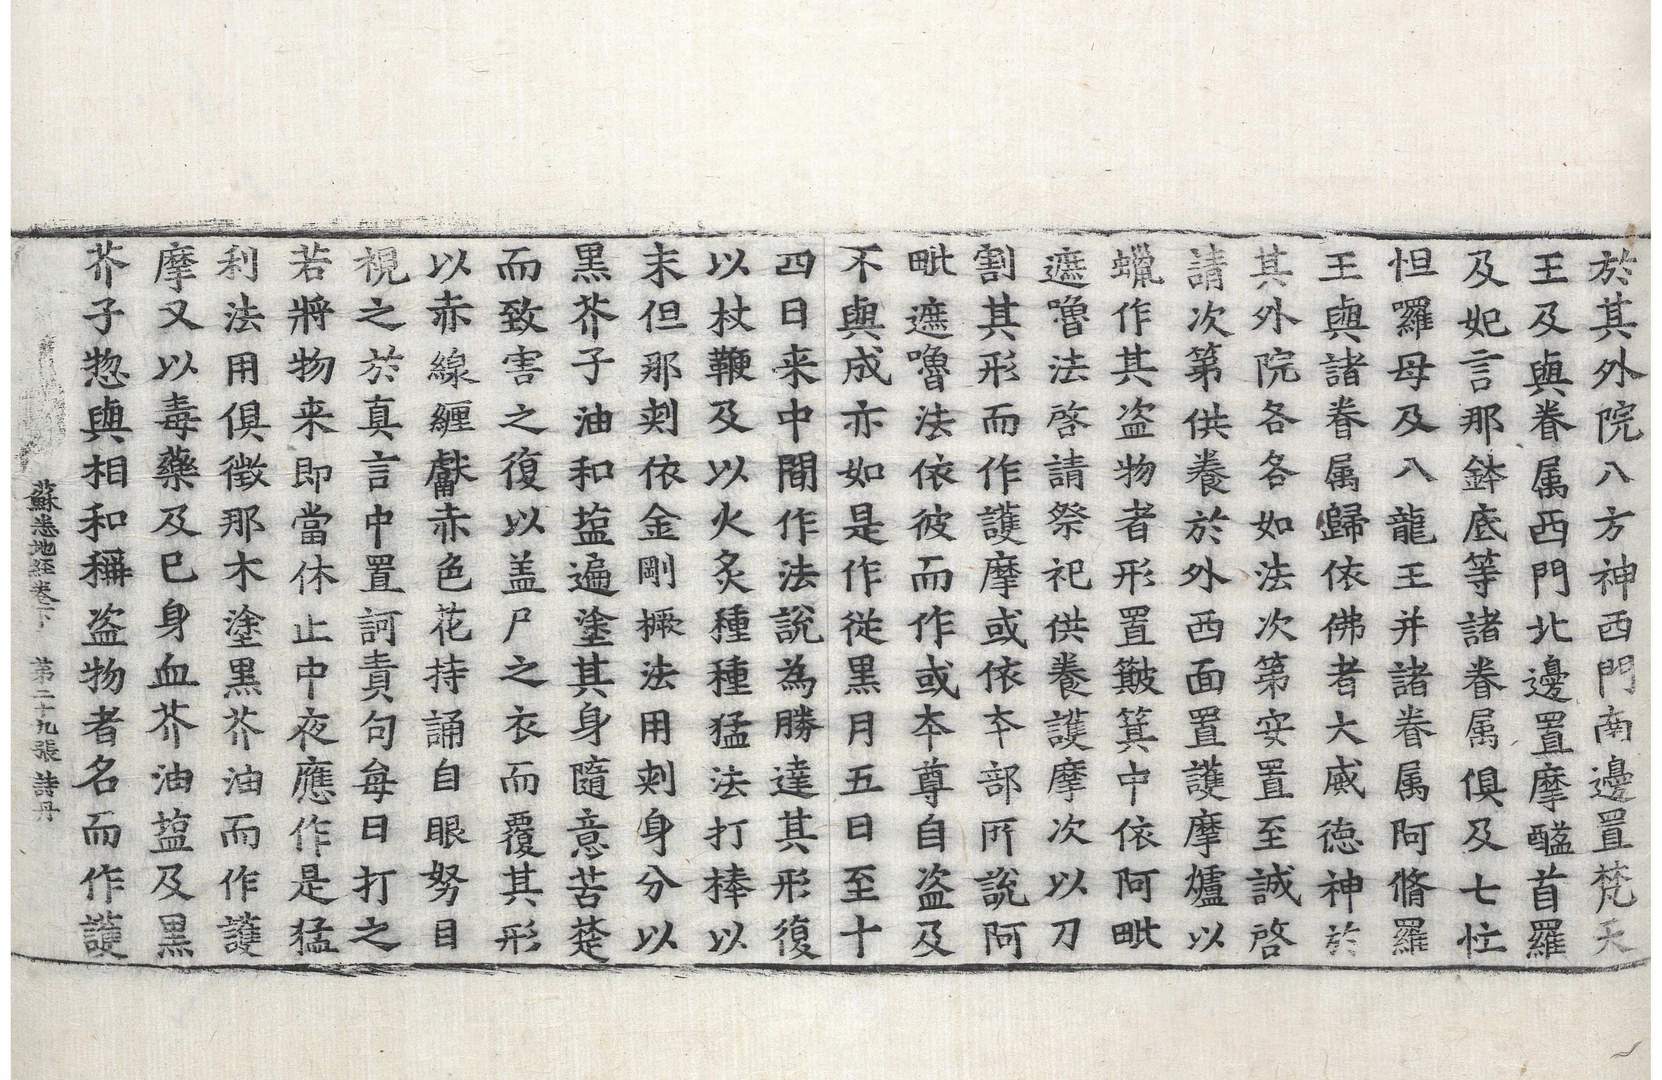 於其外院八方神西門南邊置梵天
王及與眷属西門北邊置摩醯首羅
及妃言那鉢底等諸眷属俱及七忙
怛囉母及八龍王并諸眷属阿脩羅
王與諸眷属歸依佛者大威德神於
其外院各各如法次第安置至誠啓
請次第供養於外西面置護摩爐以
蠟作其盗物者形置簸箕中依阿毗
遮嚕法啓請祭祀供養護摩次以刀
割其形而作護摩或依夲部所說阿
毗遮嚕法依彼而作或夲尊自盗及
不與成亦如是作從黑月五日至十
四日来中間作法說為勝達其形復
以杖鞭及以火炙種種猛法打棒以
末但那刾依金剛橛法用刾身分以
黑芥子油和塩遍塗其身隨意苦楚
而致害之復以盖尸之衣而覆其形
以赤線纒獻赤色花持誦自眼努目
視之於真言中置訶責句每日打之
若將物来即當休止中夜應作是猛
利法用俱徵那木塗黑芥油而作護
摩又以毒藥及巳身血芥油塩及黑
芥子惣與相和稱盗物者名而作護
蘇悉地経卷下 第二十九張 詩丹